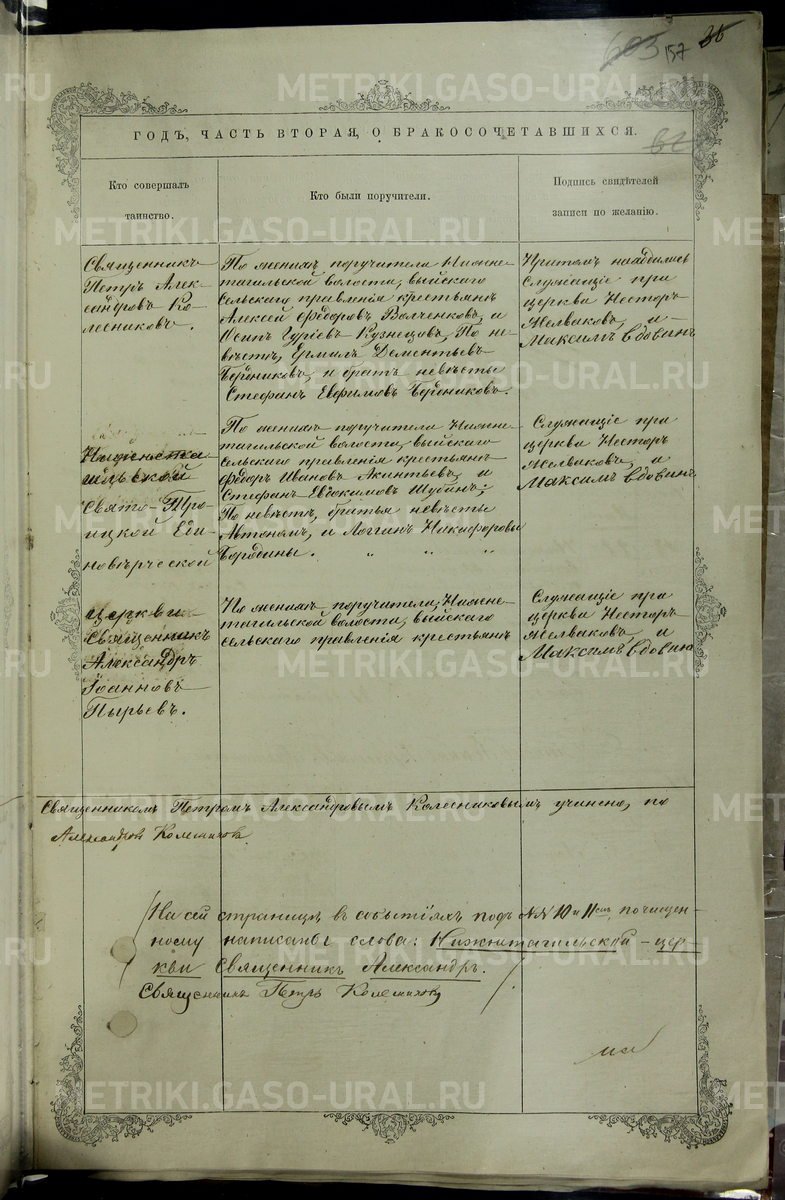 603 157 36
ГОДЪ, ЧАСТЬ ВТОРАЯ, О БРАКОСОЧЕТАВШИХСЯ.
Кто совершалъ
таинство.
Кто были поручители.
Подпись свидѣтелей
записи по желанію.
Священникъ
Петръ Алек-
сандровъ Ко-
лесниковъ.
По женихѣ поручители Нижне-
тагильской волости, выйскаго
сельскаго правленія крестьянъ
Алексѣй Ѳедоровъ Волченковъ, и
Осипъ Гуріевъ Кузнецовъ, По не-
вѣстѣ, Ермилъ Дементьевъ
и братъ невѣсты
Стефанъ Евфимовъ
Притомъ находились
Служащіе при
церкви Несторъ
Желваковъ, и
Максимъ Вдовинъ
Нижнетаги-
льской
Свято-Тро-
ицкой Еди-
новѣрческой
церкви
Священникъ
Александръ
Іоанновъ
Пырьевъ.
По женихѣ поручители Нижне-
тагильской волости, выйскаго
сельскаго правленія крестьянъ
Ѳедоръ Ивановъ Акинтьевъ, и
Стефанъ Евдокимовъ Шубинъ;
По невѣстѣ, братья невѣсты
Автономъ, и Логгинъ Никифоровы
Бородины. " " "
Служащіе при
церкви Несторъ
Желваковъ, и
Максимъ Вдовинъ
По женихѣ поручители, Нижне-
тагильской волости, выйскаго
сельскаго правленія крестьянъ
Служащіе при
церкви Несторъ
Желваковъ, и
Максимъ Вдовинъ
Священникомъ Петромъ Александровымъ Колесниковымъ учинено, по
Александровъ Колесниковъ
На сей страницѣ въ событіяхъ подъ №№ 10 и 11мъ, по чищен-
ному написаны слова: Нижнетагильской – цер-
кви Священникъ Александръ.
Священникъ Петръ Колесниковъ
METRIKI.GASO-URAL.RU